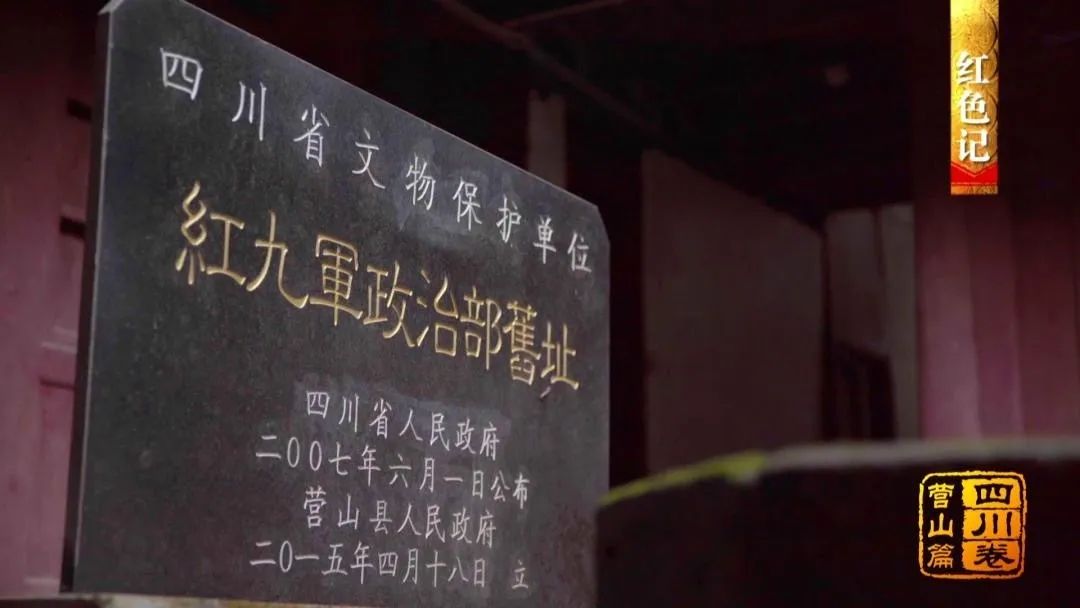 四川省文物保护单位
紅九軍政治部舊址
四川省人民政府
二〇〇七年六月一日公布
营山县人民政府
二〇一五年四月十八日 立
红色记
四川卷
营山篇